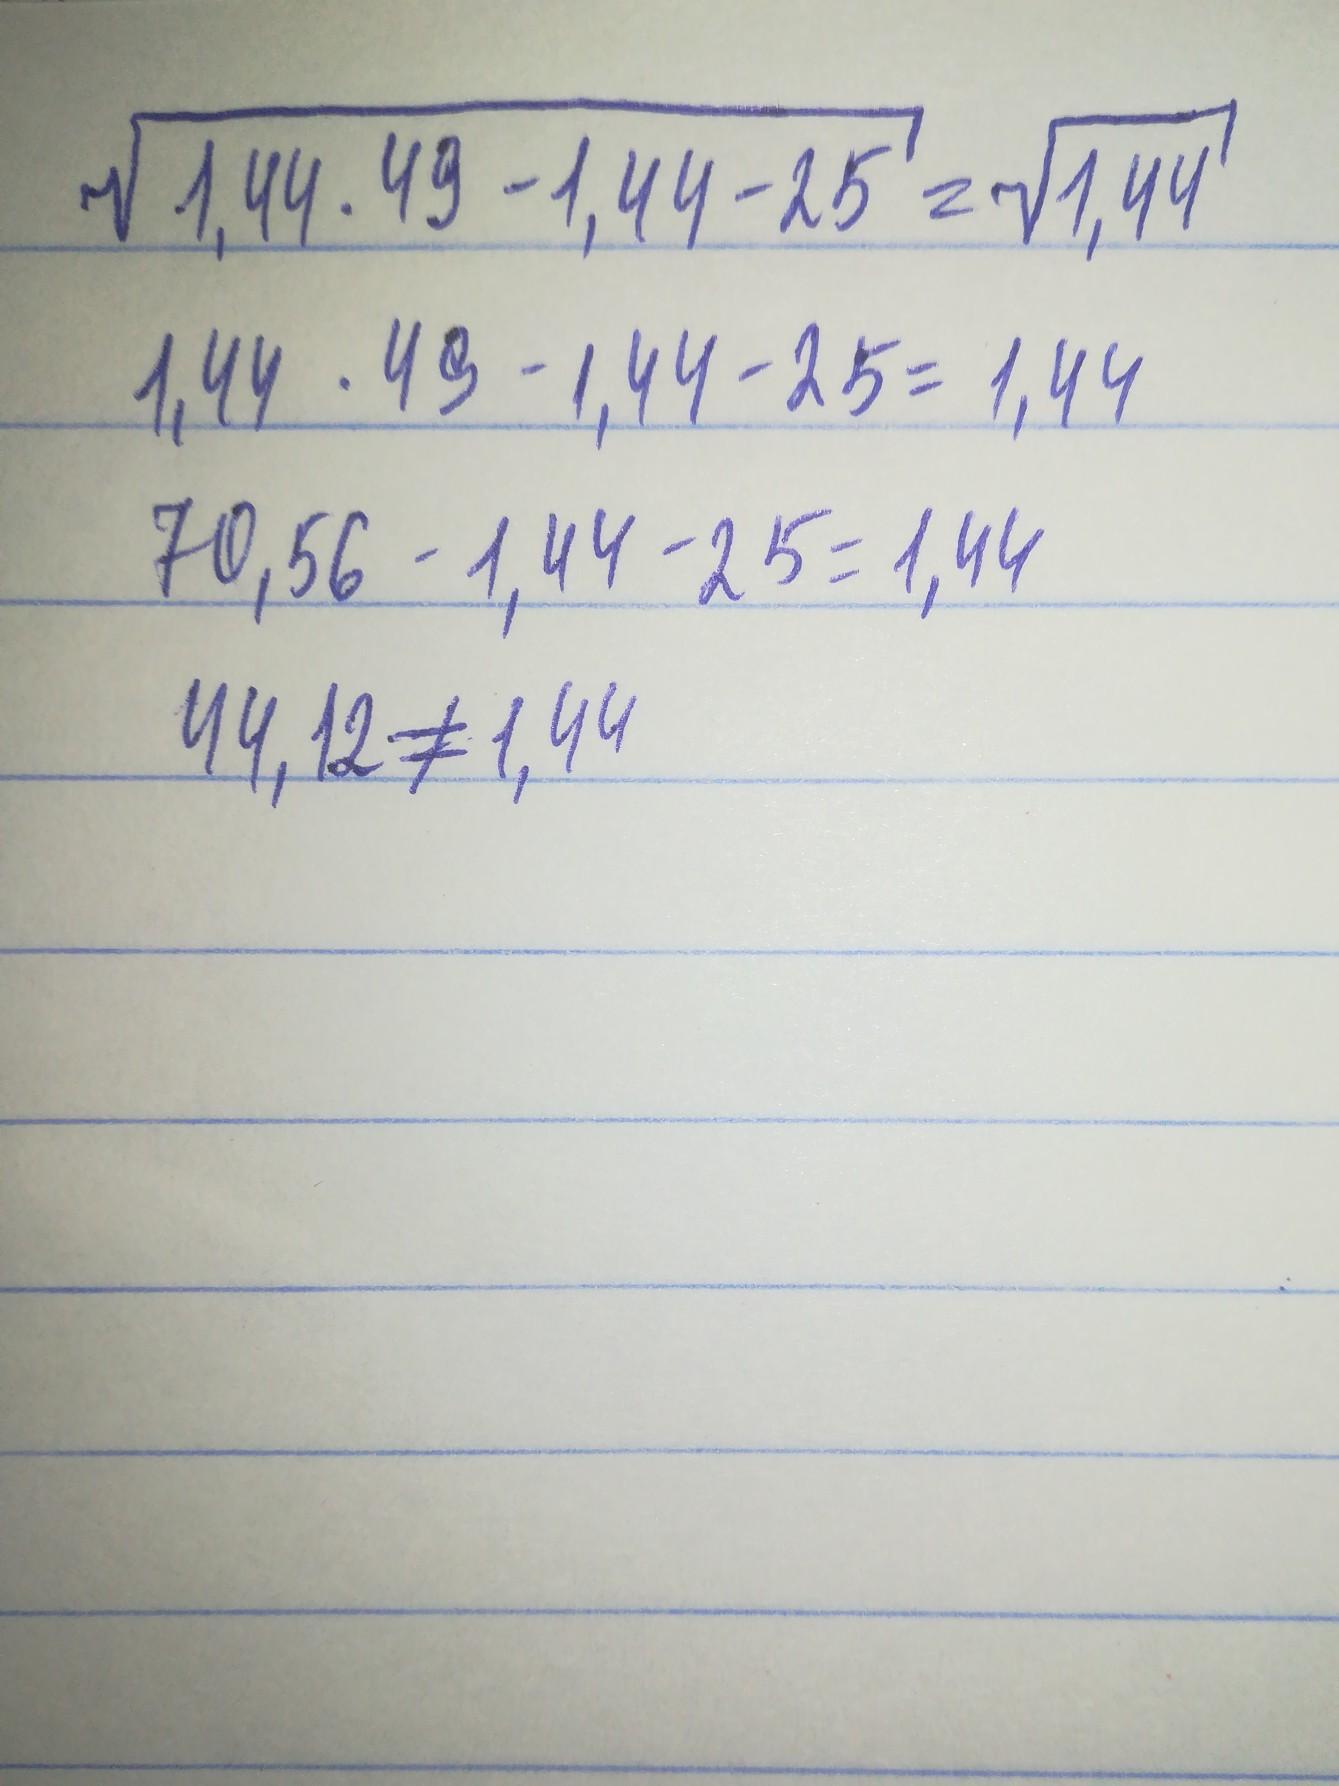 √1,44 · 49 - 1,44 - 25 = √1,44
1,44 · 49 - 1,44 - 25 = 1,44
70,56 - 1,44 - 25 = 1,44
44,12 ≠ 1,44